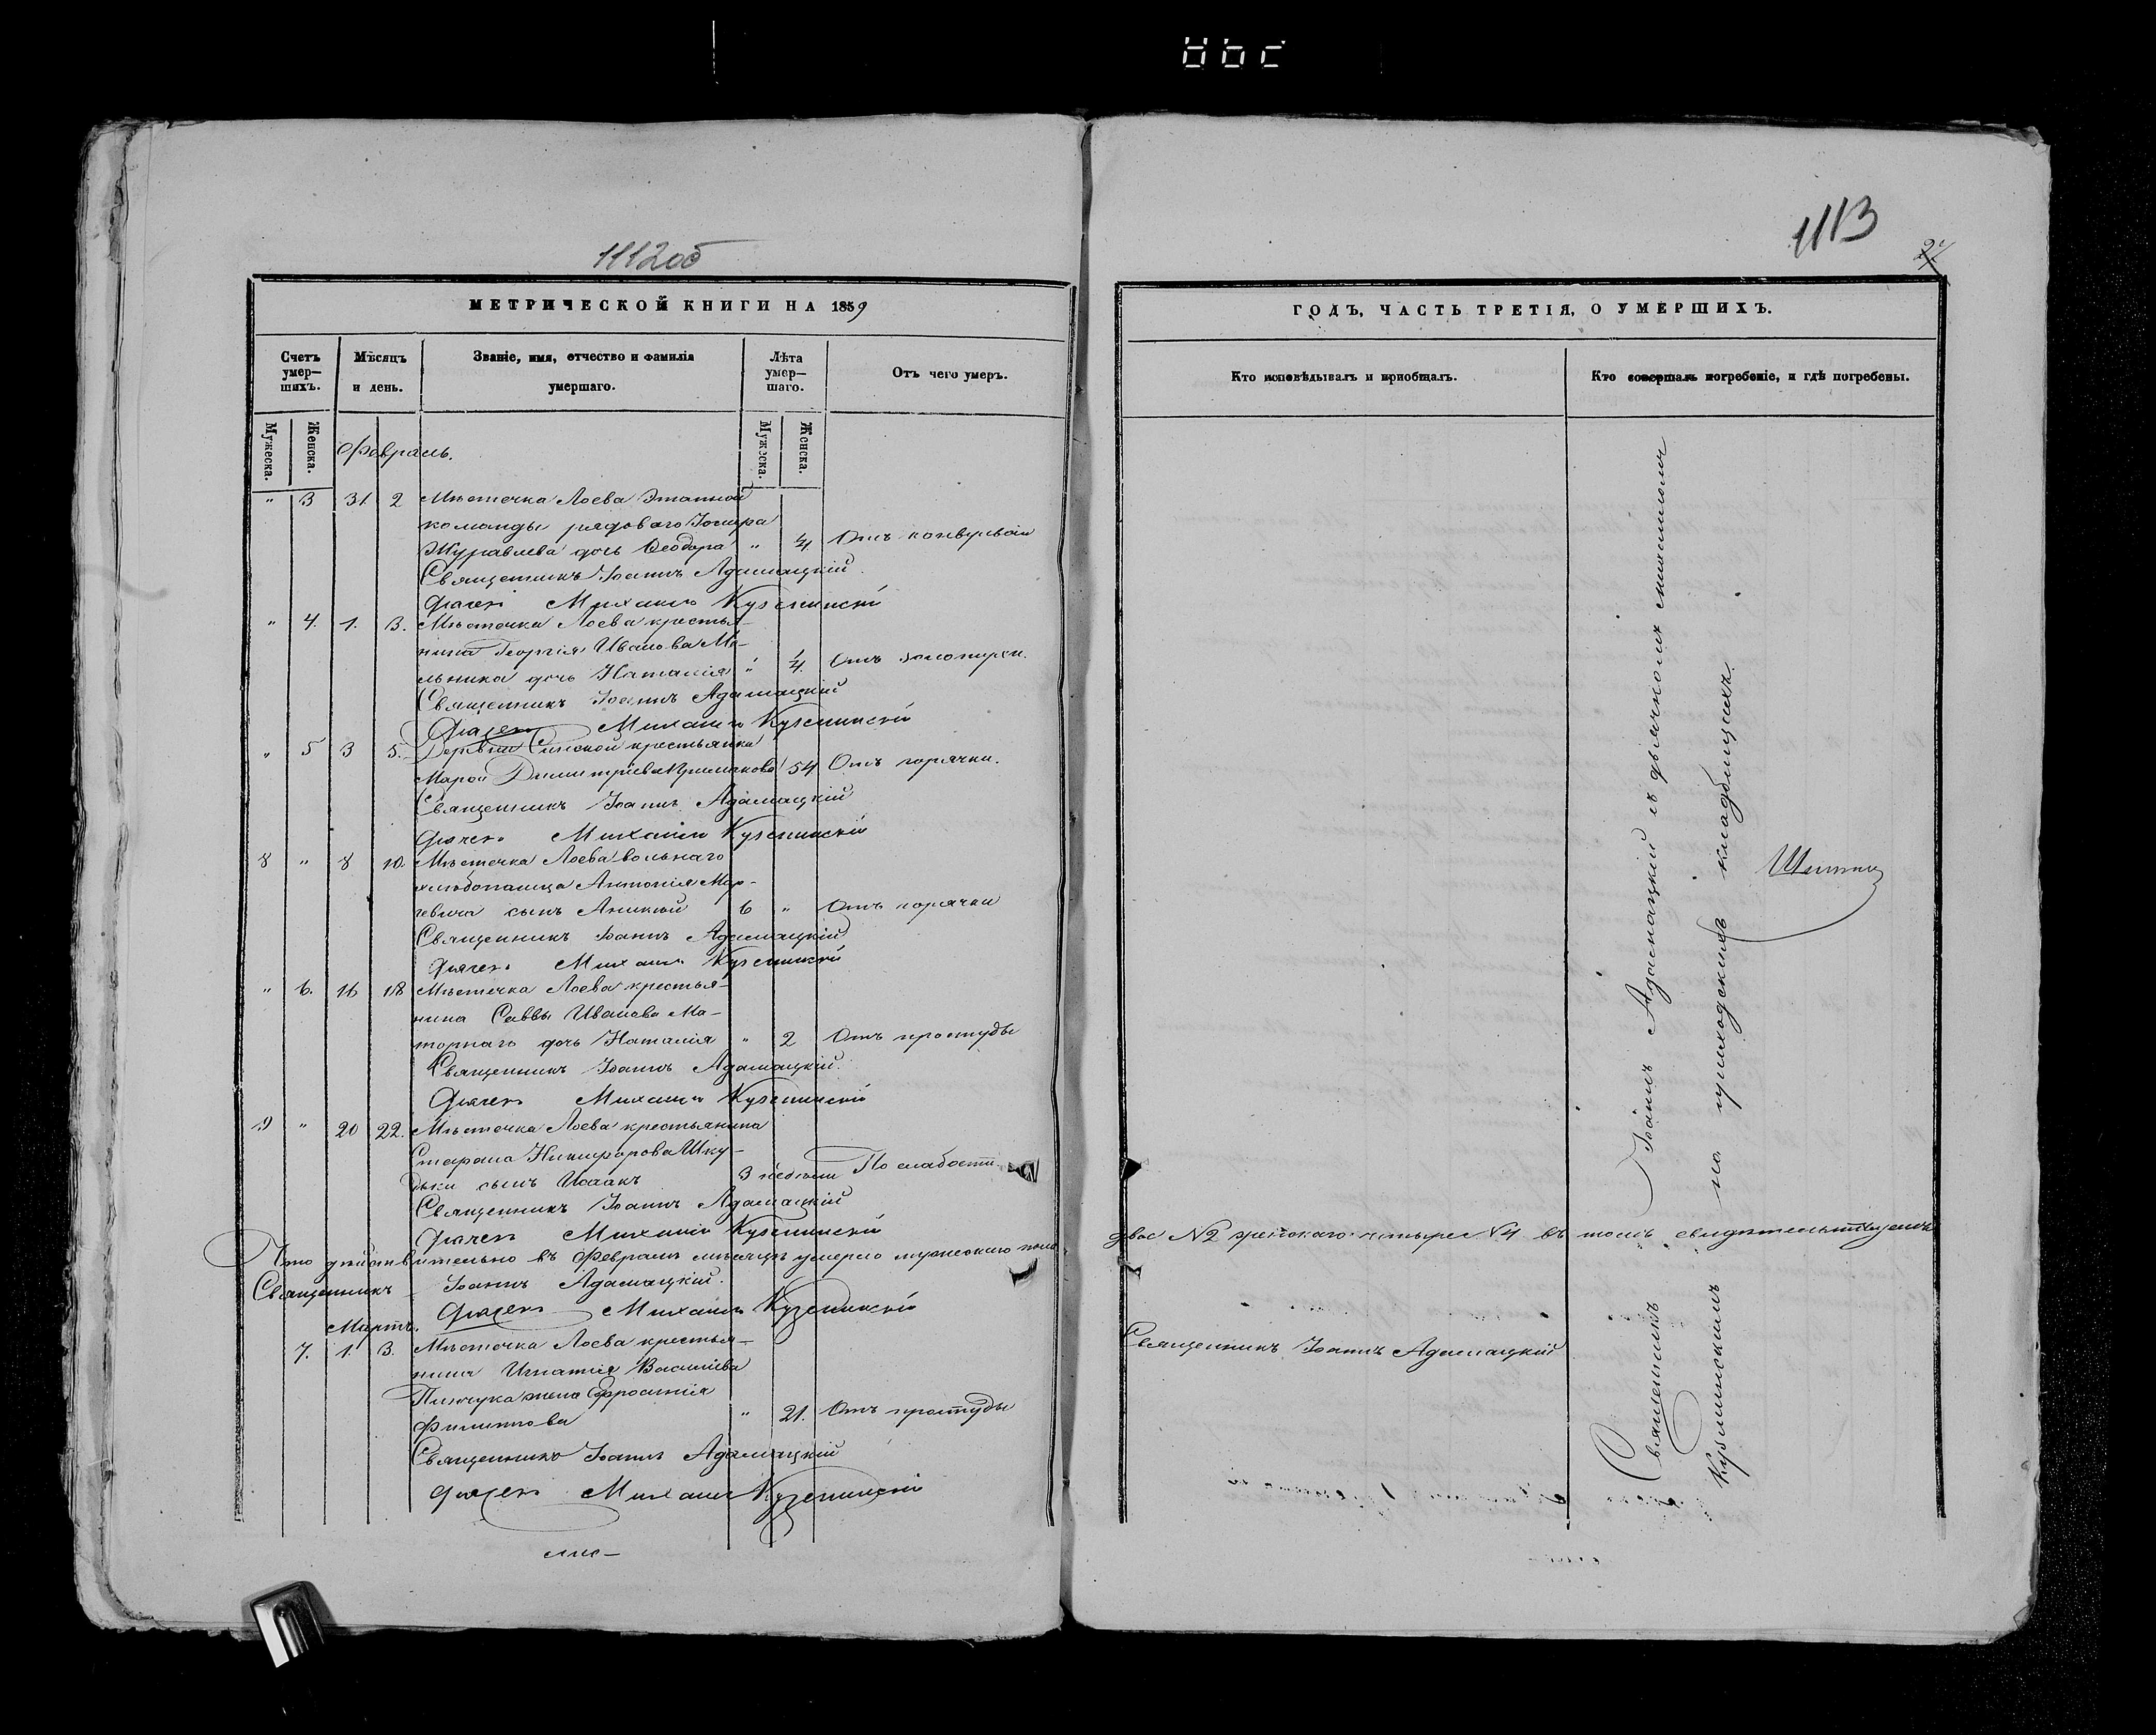 1112об
МЕТРИЧЕСКОЙ КНИГИ НА 1859
Счетъ умер-шихъ.
Мѣсяцъ и день.
Званіе, имя, отчество и фамилія умершаго.
Лѣта умер-шаго.
Отъ чего умеръ.
Мужеска.
Женска.
Мужеска.
Женска.
Февраль.
" 3 31 2 Мѣстечка Лоева Этапной
команды рядоваго
Журавлева дочь Ѳеодора " 4 Отъ
Священникъ Іоаннъ Адамацкій
Дячекъ Михаилъ Куземинскій
" 4. 1. 3. Мѣстечка Лоева крестья-
нина Георгія Иванова Ме-
льника дочь Наталія " 4. Отъ
Священникъ Іоаннъ Адамацкій
Дячекъ Михаилъ Куземинскій
" 5 3 5. Деревни крестьянка
Димитріева 54 Отъ горячки.
Священникъ Іоаннъ Адамацкій
Дячекъ Михаилъ Куземинскій
8 " 8 10. Мѣстечка Лоева вольнаго
хлѣбопашца Антонія Мар-
кевича сынъ 6 " Отъ горячки
Священникъ Іоаннъ Адамацкій
Дячекъ Михаилъ Куземинскій
" 6. 16 18 Мѣстечка Лоева крестья-
нина Саввы Иванова Ма-
торнаго дочь Наталія " 2 Отъ простуды
Священникъ Іоаннъ Адамацкій.
Дячекъ Михаилъ Куземинскій
9 " 20 22. Мѣстечка Лоева крестьянина
Стефана Никифорова Шку-
дьки сынъ Исаакъ 3 недѣли По слабости
Священникъ Іоаннъ Адамацкій
Дячекъ Михаилъ Куземинскій
Что дѣйствительно въ Февралѣ мѣсяцѣ умерло мужескаго пола
Священникъ Іоаннъ Адамацкій.
Дячекъ Михаилъ Куземинскій
Мартъ.
7. 1. 3. Мѣстечка Лоева крестья-
нина Игнатія Василіева
Пинчука жена Ефросинія
Филиппова " 21. Отъ простуды
Священникъ Іоаннъ Адамацкій
Дячекъ Михаилъ Куземинскій
1113
ГОДЪ, ЧАСТЬ ТРЕТІЯ, О УМЕРШИХЪ.
Кто исповѣдывалъ и приобщалъ.
Кто совершалъ погребеніе, и гдѣ погребены.
двое №2 женскаго четыре №4 въ томъ свидѣтельствуемъ
Священникъ Іоаннъ Адамацкій
Священникъ Іоаннъ Адамацкій съ дьячкомъ Михаиломъ
Куземинскимъ на приходскихъ кладбищахъ.